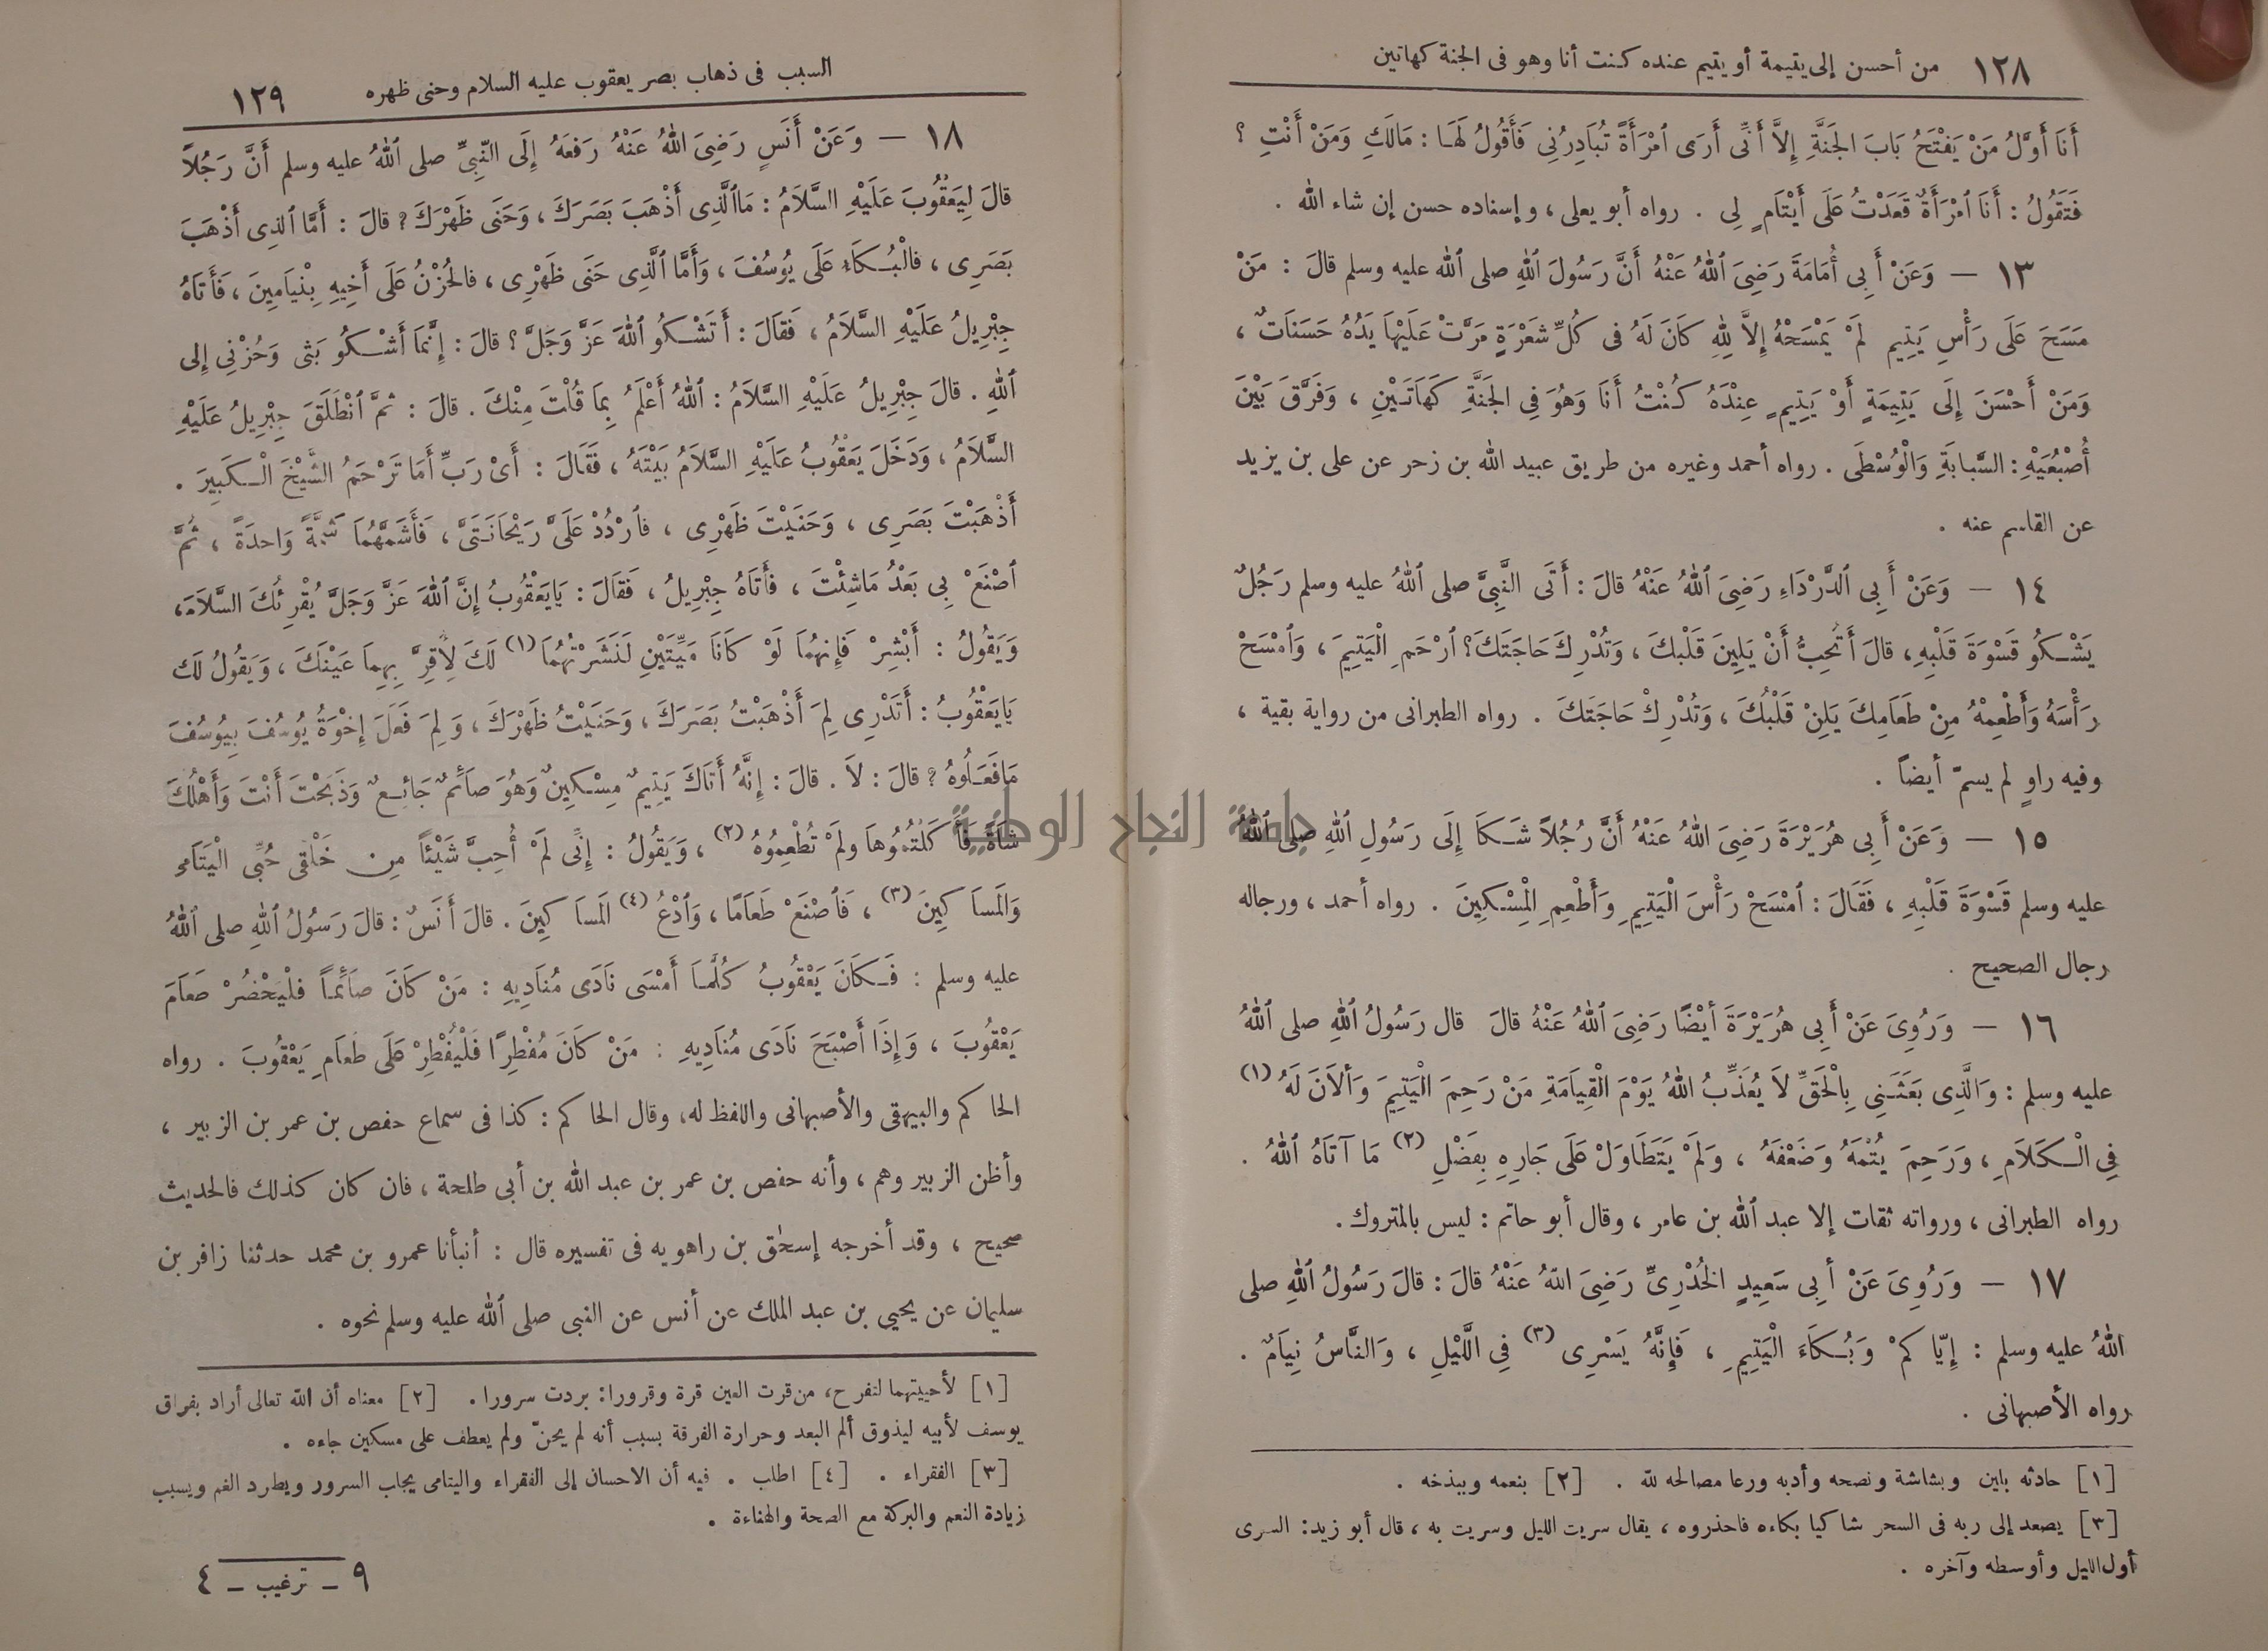 ١٢٨ من أحسن إلى يتيمة أو يتيم عنده كنت أنا وهو فى الجنة كهاتين
أَنَا أَوَّلُ مَنْ يَفْتَحُ بَابَ الجَنَّةِ إِلاَّ أَنِّى أَرَى ٱمْرَأَةً تُبَادِرُنِى فَأَقُولُ لَهَا : مَالَكِ وَمَنْ أَنْتِ ؟
فَتَقُولُ : أَنَا ٱمْرَأَةٌ قَعَدْتُ عَلَى أَيْتَامٍ لِى . رواه أبو يعلى ، وإسناده حسن إن شاء الله .
١٣ — وَعَنْ أَبِى أُمَامَةَ رَضِىَ ٱللهُ عَنْهُ أَنَّ رَسُولَ ٱللهِ صلى ٱلله عليه وسلم قالَ : مَنْ
مَسَحَ عَلَى رَأْسِ يَتِيمٍ لَمْ يَمْسَحْهُ إِلاَّ لِلهِ كَانَ لَهُ فى كُلِّ شَعْرَةٍ مَرَّتْ عَلَيْهَا يَدُهُ حَسَنَاتٌ ،
وَمَنْ أَحْسَنَ إِلَى يَتِيمَةٍ أَوْ يَتِيمٍ عِنْدَهُ كُنْتُ أَنَا وَهُوَ فِى الجَنَّةِ كَهَاتَيْنِ ، وَفَرَّقَ بَيْنَ
أُصْبُعَيْهِ : السَّبابَةِ وَالْوُسْطَى . رواه أحمد وغيره من طريق عبيد الله بن زحر عن على بن يزيد
عن القاسم عنه .
١٤ — وَعَنْ أَبِى ٱلدَّرْدَاءِ رَضِىَ ٱللهُ عَنْهُ قالَ : أَتَى النَّبِىَّ صلى ٱللهُ عليه وسلم رَجُلٌ
يَشْكُو قَسْوَةَ قَلْبِهِ ، قالَ أَتُحِبُّ أَنْ يَلِينَ قَلْبكَ ، وَتُدْرِكَ حَاجَتَكَ؟ ٱرْحَمِ الْيَتِيمَ ، وَٱمْسَحْ
رَأْسَهُ وَأَطْعِمْهُ مِنْ طَعَامِكَ يَلِنْ قَلْبُكَ ، وَتُدْرِكْ حَاجَتَكَ . رواه الطبرانى من رواية بقية ،
وفيه راوٍ لم يسمّ أيضاً .
١٥ — وَعَنْ أَبِى هُرَيْرَةَ رَضِىَ ٱللهُ عَنْهُ أَنَّ رُجُلاً شَكَا إِلَى رَسُولِ ٱللهِ صلى ٱللهُ
عليه وسلم قَسْوَةَ قَلْبِهِ ، فَقَالَ : ٱمْسَحْ رَأْسَ الْيَتِيمِ وَأَطْعِمِ الْمِسْكِينَ . رواه أحمد ، ورجاله
رجال الصحيح .
١٦ — وَرُوِىَ عَنْ أَبِى هُرَيْرَةَ أيْضًا رَضِىَ ٱللهُ عَنْهُ قالَ قال رَسُولُ ٱللهِ صلى ٱللهُ
عليه وسلم : وَالَّذِى بَعَثَنِى بِالْحَقِّ لاَ يُعَذِّبُ ٱللهُ يَوْمَ الْقِيَامَةِ مَنْ رَحِمَ الْيَتِيمَ وَأَلاَنَ لَهُ (١)
فِى الْكَلاَمِ ، وَرَحِمَ يُتْمَهُ وَضَعْفَهُ ، وَلَمْ يَتَطَاوَلْ عَلَى جَارِهِ بِفَضْلِ (٢) مَا آتَاهُ ٱللهُ .
رواه الطبرانى ، ورواته ثقات إلا عبد ٱلله بن عامر ، وقال أبو حاتم : ليس بالمتروك .
١٧ — وَرُوِىَ عَنْ أَبِى سَعِيدٍ الخُدْرِىِّ رَضِىَ ٱللهُ عَنْهُ قالَ : قالَ رَسُولُ ٱللهِ صلى
ٱللهُ عليه وسلم : إِيّاكُمْ وَبُكَاءَ الْيَتِيمِ ، فَإِنَّهُ يَسْرِى (٣) فِى اللَّيْلِ ، وَالنَّاسُ نِيَامٌ .
رواه الأصبهانى .
[١] حادثه بلين وبشاشة ونصحه وأدبه ورعا مصالحه لله . [٢] بنعمه وببذخه .
[٣] يصعد إلى ربه فى السحر شاكيا بكاءه فاحذروه ، يقال سريت الليل وسريت به ، قال أبو زيد: السرى
أول الليل وأوسطه وآخره .
السبب فى ذهاب بصر يعقوب عليه السلام وحنى ظهره ١٢٩
١٨ — وَعَنْ أَنَسٍ رَضِىَ ٱللهُ عَنْهُ رَفَعَهُ إِلَى النَّبِىِّ صلى ٱللهُ عليه وسلم أَنَّ رَجُلاً
قالَ لِيَعْقُوبَ عَلَيْهِ السَّلاَمُ : مَاٱلَّذِى أَذْهَبَ بَصَرَكَ ، وَحَنَى ظَهْرَكَ ؟ قالَ : أَمَّا ٱلذِى أَذْهَبَ
بَصَرِى ، فالْبُكَاءُ عَلَى يُوسُفَ ، وَأَمَّا ٱلَّذِى حَنَى ظَهْرِى ، فالحُزْنُ عَلَى أَخِيهِ بِنْيَامِينَ ، فَأَتَاهُ
جِبْرِيلُ عَلَيْهِ السَّلاَمُ ، فَقالَ : أَتَشْكُو ٱللهَ عَزَّ وَجَلَّ ؟ قالَ : إِنَّمَا أَشْكُو بَثى وَحُزْنِى إِلى
ٱللهِ . قالَ جِبْرِيلُ عَلَيْهِ السَّلاَمُ : ٱللهُ أَعْلَمُ بِمَا قُلْتَ مِنْكَ . قالَ : ثمَّ ٱنْطَلَقَ جِبْرِيلُ عَلَيْهِ
السَّلاَمُ ، وَدَخَلَ يَعْقُوبُ عَلَيْهِ السَّلاَمُ بَيْتَهُ ، فَقَالَ : أَىْ رَبِّ أَمَا تَرْحَمُ الشَّيْخَ الْكَبِيرَ .
أَذْهَبْتَ بَصَرِى ، وَحَنَيْتَ ظَهْرِى ، فٱرْدُدْ عَلَىَّ رَيْحَانَتَىَّ ، فَأَشَمَّهُمَا شَمَّةً وَاحدَةً ، ثُمَّ
ٱصْنَعْ بِى بَعْدُ مَاشِئْتَ ، فأَتَاهُ جِبْرِيلُ ، فَقالَ : يَايَعْقُوبُ إِنَّ ٱللهَ عَزَّ وَجَلَّ يُقْرِئُكَ السَّلاَمَ،
وَيَقُولُ : أَبْشِرْ فَإِنهُمَا لَوْ كَانَا مَيِّتَيْنِ لَنَشَرْتُهُمَا (١) لَكَ لِأُقِرَّ بِهِمَا عَيْنَكَ ، وَيَقُولُ لَك
يَايَعْقُوبُ : أَتَدْرِى لِمَ أَذْهَبْتُ بَصَرَكَ ، وَحَنَيْتُ ظَهْرَكَ ، وَلِمَ فَعَلَ إِخْوَةُ يُوسُفَ بِيُوسُفَ
مَافَعَلُوهُ ؟ قالَ : لاَ . قالَ : إِنَّهُ أَتَاكَ يَتِيمٌ مِسْكِينٌ وَهُوَ صَائمٌ جَائعٌ وَذَبَحْتَ أَنْتَ وَأَهْلُكَ
شَاةً فَأَكَلْتُمُوهَا ولَمْ تُطْعِمُوهُ (٢) ، وَيَقُولُ : إِنِّى لَمْ أُحِبَّ شَيْئاً مِن خَلْقى حُبِّى الْيَتَامى
وَالْمَساكِينَ (٣) ، فَاصْنَعْ طَعَامًا ، وَٱدْعُ (٤) المَساكِينَ . قالَ أَنَسٌ : قالَ رَسُولُ ٱللهِ صلى ٱللهُ
عليه وسلم : فَكَانَ يَعْقُوبُ كُلَّمَا أَمْسَى نَادَى مُنَادِيهِ : مَنْ كَانَ صَائمًا فلْيَحْضُرْ طَعَامَ
يَعْقُوبَ ، وَإِذَا أَصْبَحَ نَادَى مُنَادِيهِ : مَنْ كَانَ مُفْطِرًا فَلْيُفْطِرْ عَلَى طَعَامِ يَعْقُوبَ . رواه
الحاكم والبيهقى والأصبهانى واللفظ له، وقال الحاكم : كذا فى سماع حفص بن عمر بن الزبير ،
وأظن الزبير وهم ، وأنه حفص بن عمر بن عبد الله بن أبى طلحة ، فان كان كذلك فالحديث
صحيح ، وقد أخرجه إسحٰق بن راهويه فى تفسيره قال : أنبأنا عمرو بن محمد حدثنا زافر بن
سليمان عن يحيى بن عبد الملك عن أنس عن النبى صلى ٱلله عليه وسلم نحوه .
[١] لأحييتهما لنفرح، من قرت العين قرة وقرورا: بردت سرورا . [٢] معناه أن الله تعالى أراد بفراق
يوسف لأبيه ليذوق ألم البعد وحرارة الفرقة بسبب أنه لم يحنّ ولم يعطف على مسكين جاءه .
[٣] الفقراء . [٤] اطلب . فيه أن الاحسان إلى الفقراء واليتامى يجلب السرور ويطرد الغم ويسبب
زيادة النعم والبركة مع الصحة والهناءة .
٩ — ترغيب — ٤
جامعة النجاح الوطنية